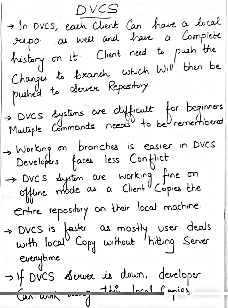 DVCS
→ In DVCS, each client can have a local
repo as well and have a complete
history on it. Client need to push the
changes to branch which will then be
pushed to server Repository
→ DVCS systems are difficult for beginners
Multiple commands needs to be remembered
→ Working on branches is easier in DVCS
Developer faces less conflict.
→ DVCS system are working fine on
offline mode as a client copies the
entire repository on their local machine
→ DVCS is faster as mostly user deals
with local copy without hitting server
everytime
→ If DVCS server is down, developer
can work using their local copies